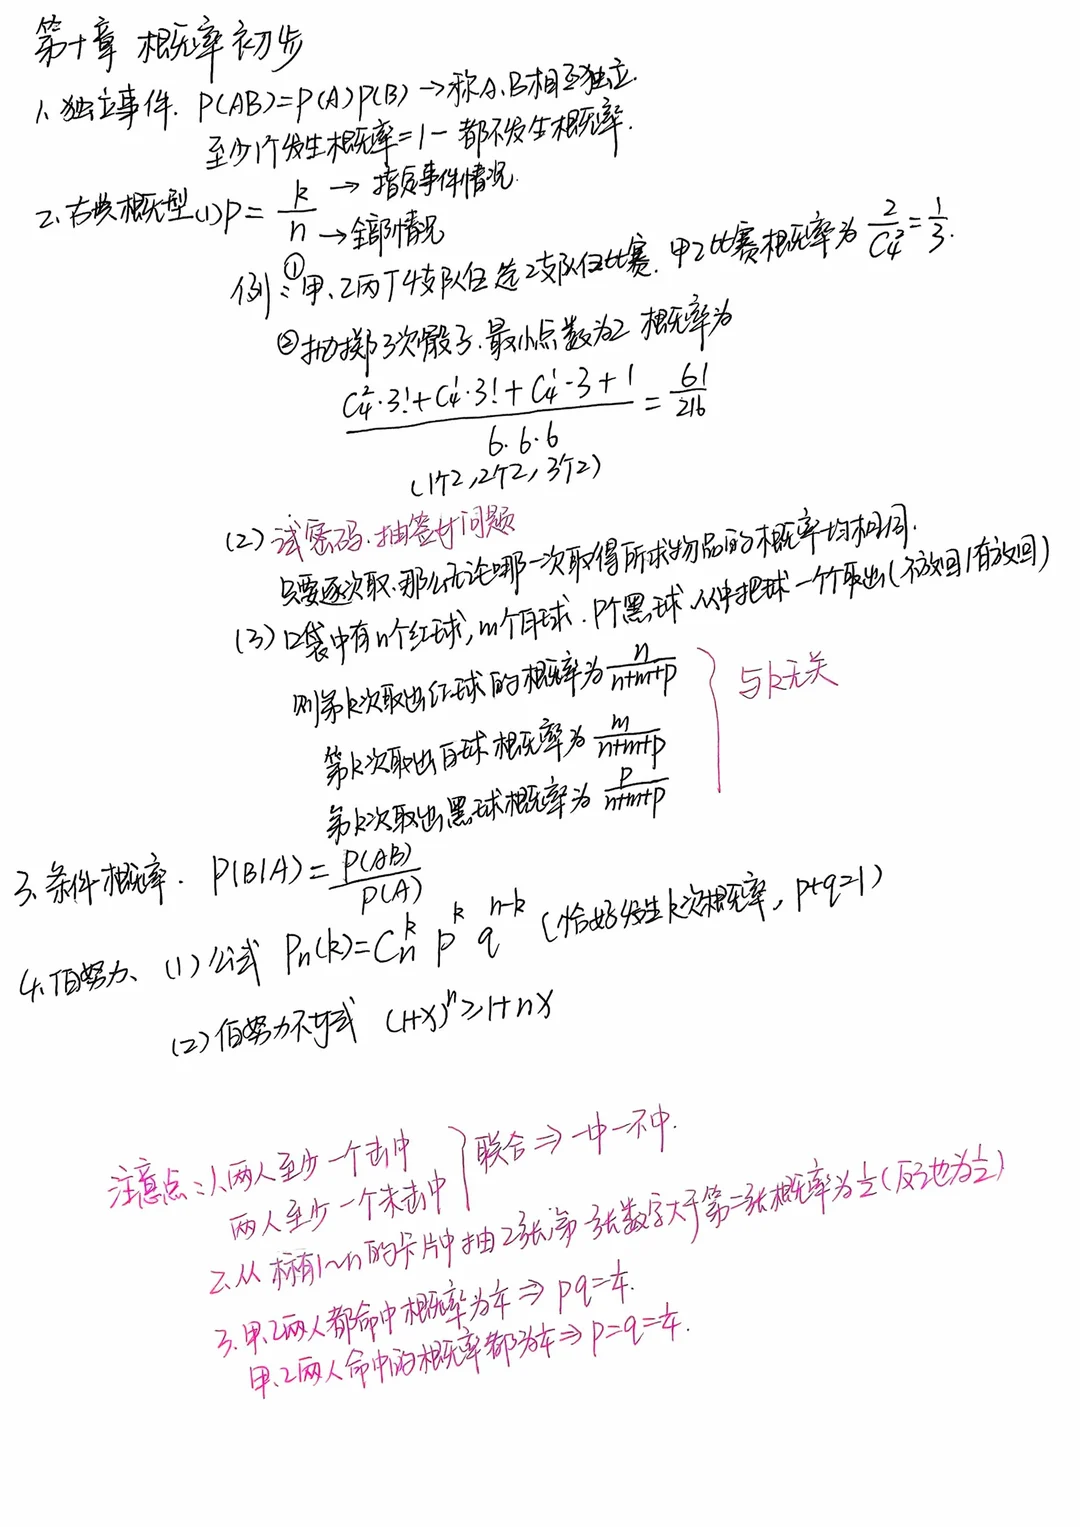 第十章 概率初步
1、独立事件. P(AB)=P(A)P(B) →称A、B相互独立.
至少1个发生概率=1-都不发生概率.
2、古典概型(1)P= k/n →指定事件情况.
→全部情况
例:①甲、乙丙丁4支队伍选2支队伍比赛. 甲乙比赛概率为 2/C₄²=1/3.
②抛掷3次骰子.最小点数为2 概率为
(C₄²·3!+C₄¹·3!+C₄¹·3+1)/(6·6·6) = 61/216
(1个2,2个2,3个2)
(2)试密码.抽签等问题
只要逐次取.那么无论哪一次取得所求物品的概率均相同.
(3)口袋中有n个红球,m个白球.P个黑球.从中把球一个个取出(不放回/有放回)
则第k次取出红球的概率为 n/(n+m+p)
与k无关
第k次取出白球概率为 m/(n+m+p)
第k次取出黑球概率为 p/(n+m+p)
3、条件概率. P(B|A)= P(AB)/P(A)
4、伯努力、(1)公式 Pn(k)=Cₙᵏ pᵏ qⁿ⁻ᵏ (恰好发生k次概率, p+q=1)
(2)伯努力不等式 (1+x)ⁿ≥1+nx
注意点:1、两人至少一个击中
联合⇒一中一不中.
两人至少一个未击中
2、从标有1~n的卡片中抽2张,第一张数字大于第二张概率为1/2(反之也为1/2)
3、甲、乙两人都命中概率为1/4⇒pq=1/4.
甲、乙两人命中的概率都为1/4⇒p=q=1/4.